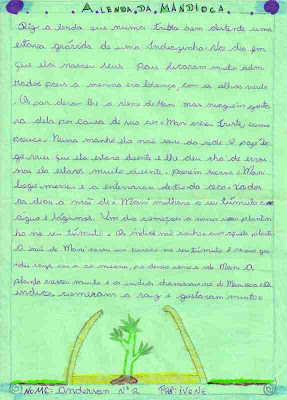 A LENDA DA MANDIOCA.
Diz a lenda que numa tribo bem distante uma
estava grávida de uma Indiazinha. No dia em
que ela nasceu seus pais ficaram muito admi
rados pois a menina era branca, com os olhos verde.
Os pais deram lhe o nome de Mani mas ninguem gosta
va dela por causa de sua cor. Mani era triste, comia
pouco. Numa manhã ela não saiu da rede. O pajé lo
go viu que ela estava doente e lhe deu chá de ervas
mas ela estava muito doente. porem Mani
logo morreu e a enterraram dentro da oca. todos
os dias a mãe de Mani molhava o seu túmulo com
água e lágrimas. Um dia começou a nascer uma plantin
ha no seu túmulo. Os indios não conhecia aquela planta.
A mãe de Mani cavou um buraco no seu túmulo e
raiz com a cor morena, por dentro branca Mani. A
planta cresceu muito e os indios chamaram de Mandioca e os
indios comeram a raiz e gostaram muito.
NOME: Anderson Nº 2 Prof: IVONE